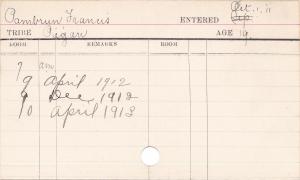 Pambrun Francis ENTERED Oct. 1, 11
TRIBE Piegan AGE 19.
ROOM REMARKS ROOM
9 am
9 April 1912
9 Dec. 1912
10 April 1913